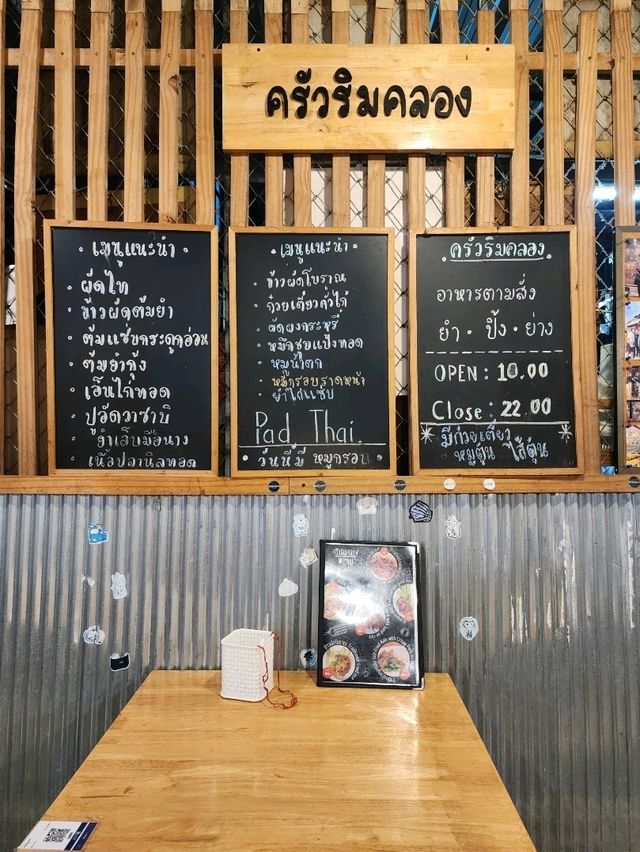 ครัวริมคลอง
• เมนูแนะนำ •
• ผัดไท
• ข้าวผัดต้มยำ
• ต้มแซ่บกระดูกอ่อน
• ต้มยำกุ้ง
• เอ็นไก่ทอด
• ปูอัดวาซาบิ
• ยำเล็บมือนาง
• เนื้อปลานิลทอด
• เมนูแนะนำ •
• ข้าวผัดโบราณ
• ก๋วยเตี๋ยวคั่วไก่
• ผัดผงกระหรี่
• หมึกชุบแป้งทอด
• หมูน้ำตก
• หมี่กรอบราดหน้า
• ยำไก่แซ่บ
Pad Thai.
• วันนี้มี หมูกรอบ •
• ครัวริมคลอง •
อาหารตามสั่ง
ยำ • ปิ้ง • ย่าง
OPEN : 10.00
Close : 22.00
มีก๋วยเตี๋ยว
หมูตุ๋น ไก่ตุ๋น